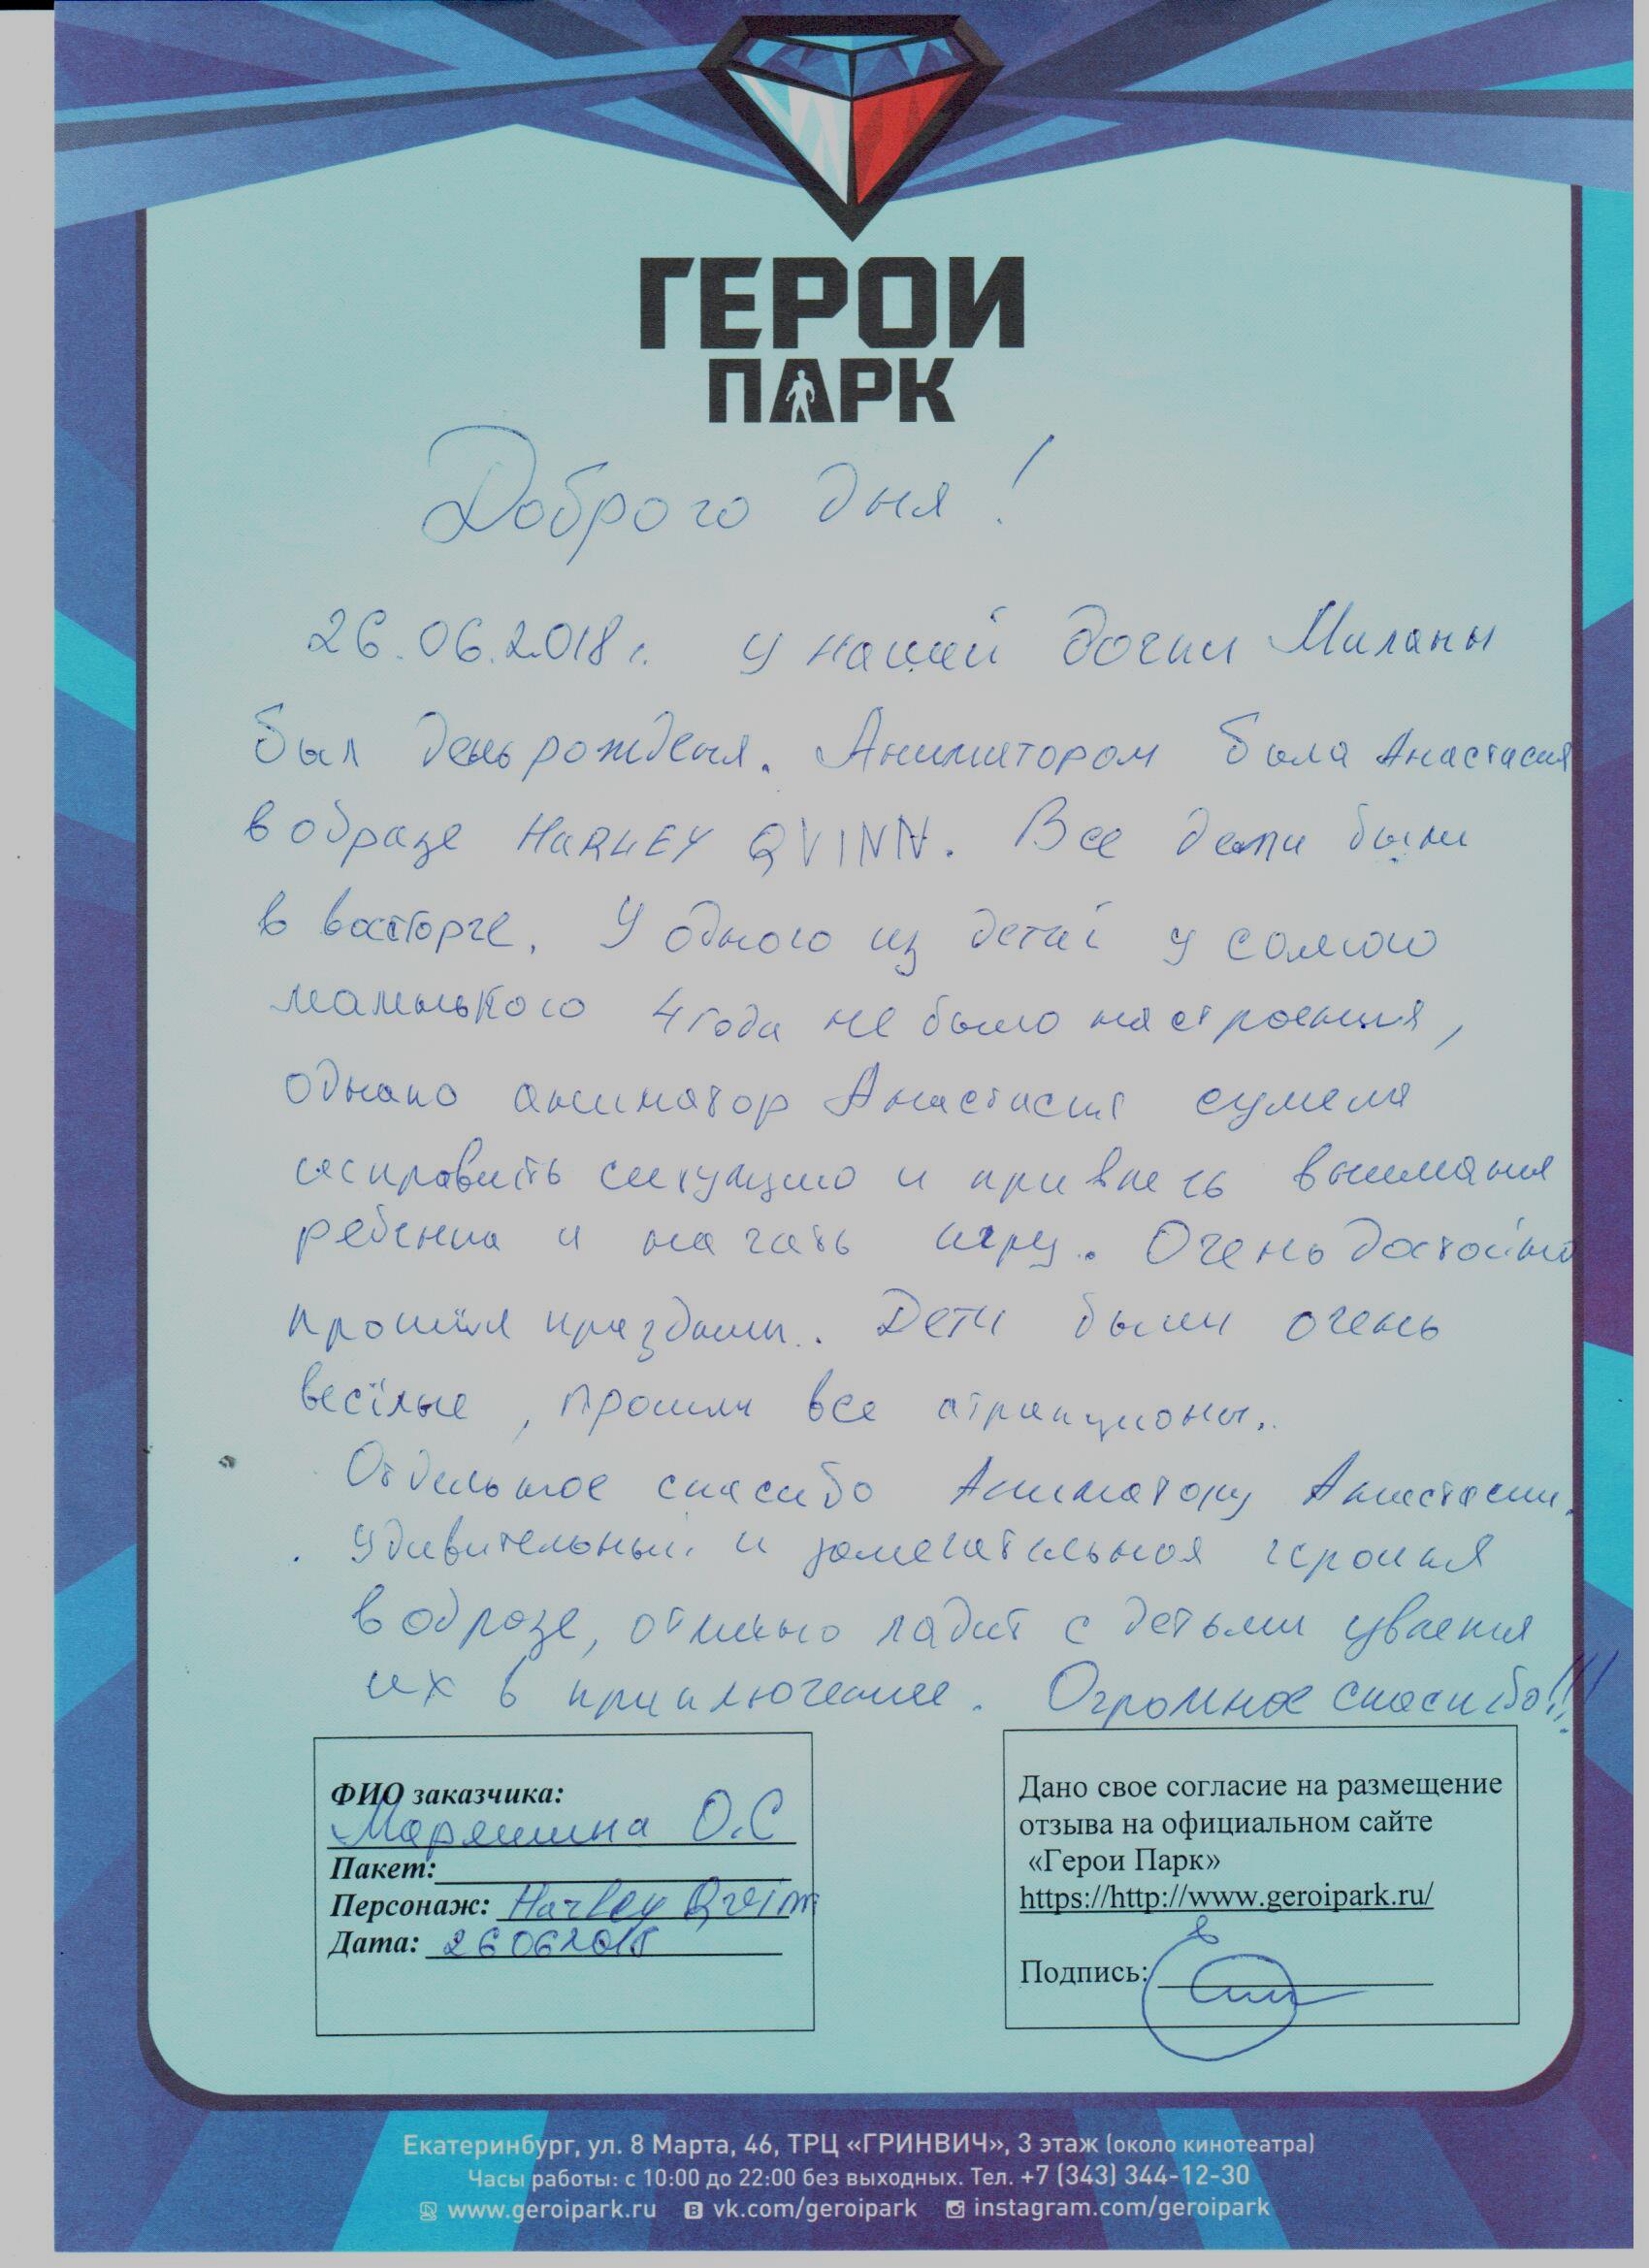 ГЕРОИ
ПАРК
Доброго дня!
26.06.2018 г. у нашей дочки Миланы
был день рождения. Аниматором была Анастасия
в образе HARLEY QVINN. Все дети были
в восторге. У одного из детей у самого
маленького 4 года не было настроения,
однако аниматор Анастасия сумела
исправить ситуацию и привлечь внимания
ребенка и начать игру. Очень достойно
прошёл праздник. Дети были очень
весёлые, прошли все атракционы.
Отдельное спасибо Аниматору Анастасии.
Удивительный и замечательная героиня
в образе, отлично ладит с детьми увлекая
их в приключение. Огромное спасибо!!!
ФИО заказчика:
О.С
Пакет:
Персонаж: Harley Qvinn
Дата: 26062018
Дано свое согласие на размещение
отзыва на официальном сайте
«Герои Парк»
https://http://www.geroipark.ru/
Подпись:
Екатеринбург, ул. 8 Марта, 46, ТРЦ «ГРИНВИЧ», 3 этаж (около кинотеатра)
Часы работы: с 10:00 до 22:00 без выходных. Тел. +7 (343) 344-12-30
www.geroipark.ru vk.com/geroipark instagram.com/geroipark